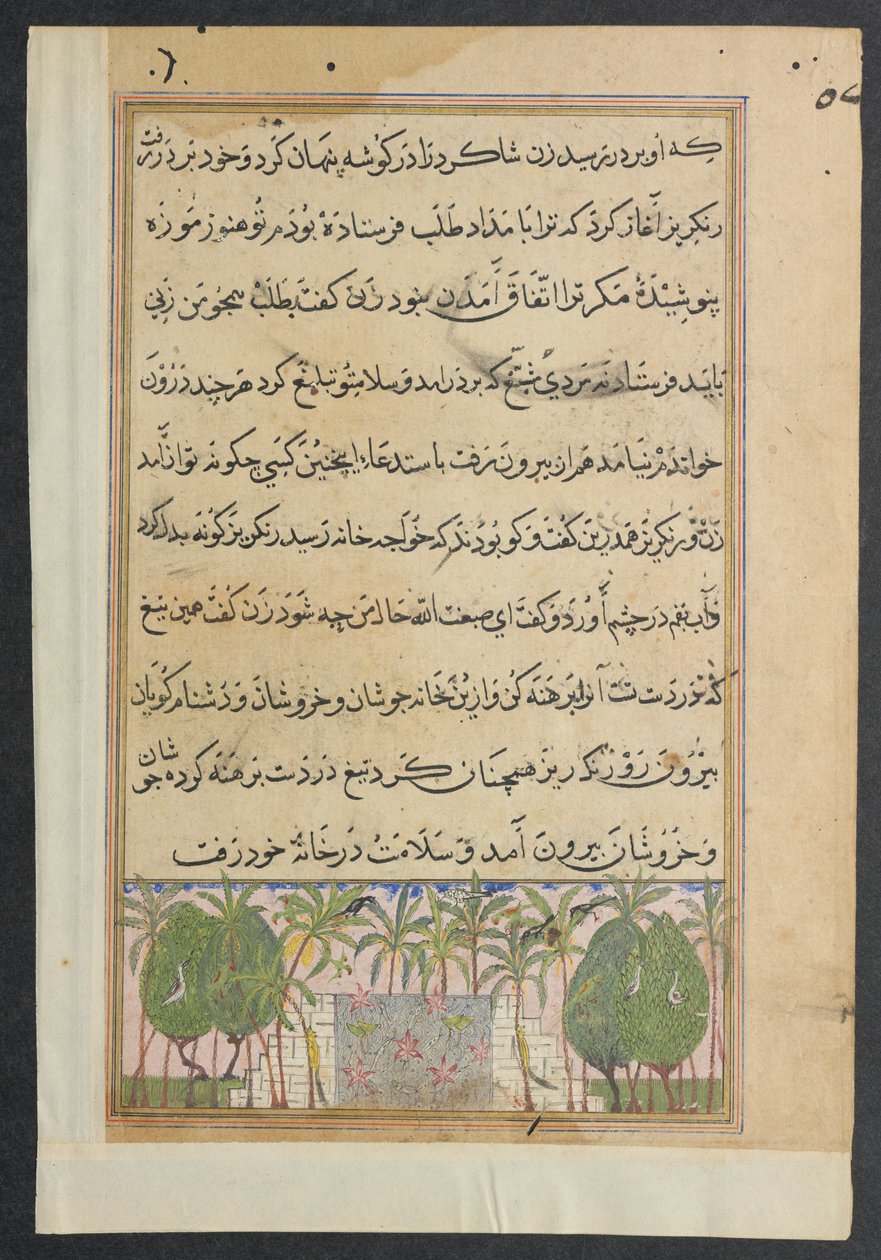 که او بر در رسید زن شاکرد را در کوشه پنهان کرد و خود بر در رفت
رنکریز آغاز کرد که ترا بامداد طلب فرستاده بودم تو هنوز موزه
پوشیدهٔ مکر ترا اتفاق آمدن نبود زن کفت بطلب همچو من زنی
باید فرستاد نه مردی که بر در امد و سلام تو تبلیغ کرد هر چند درون
خواندم نیامد هم از بیرون رفت باستدعاء اینچنین کسی چکونه توان آمد
زن و رنکریز همدرین کفت و کو بودند که خواجه خانه رسید رنکریز کونه بدل کرد
و آب بقم در چشم آورد و کفت ای صبغت الله حال من چه شود زن کفت همین تیغ
که در دست تست آنرا برهنه کن و ازین خانه جوشان و خروشان و دشنام کویان
بیرون رو رنکریز همچنان کرد تیغ در دست برهنه کرده جوشان
و خروشان بیرون آمد و سلامت در خانهٔ خود رفت